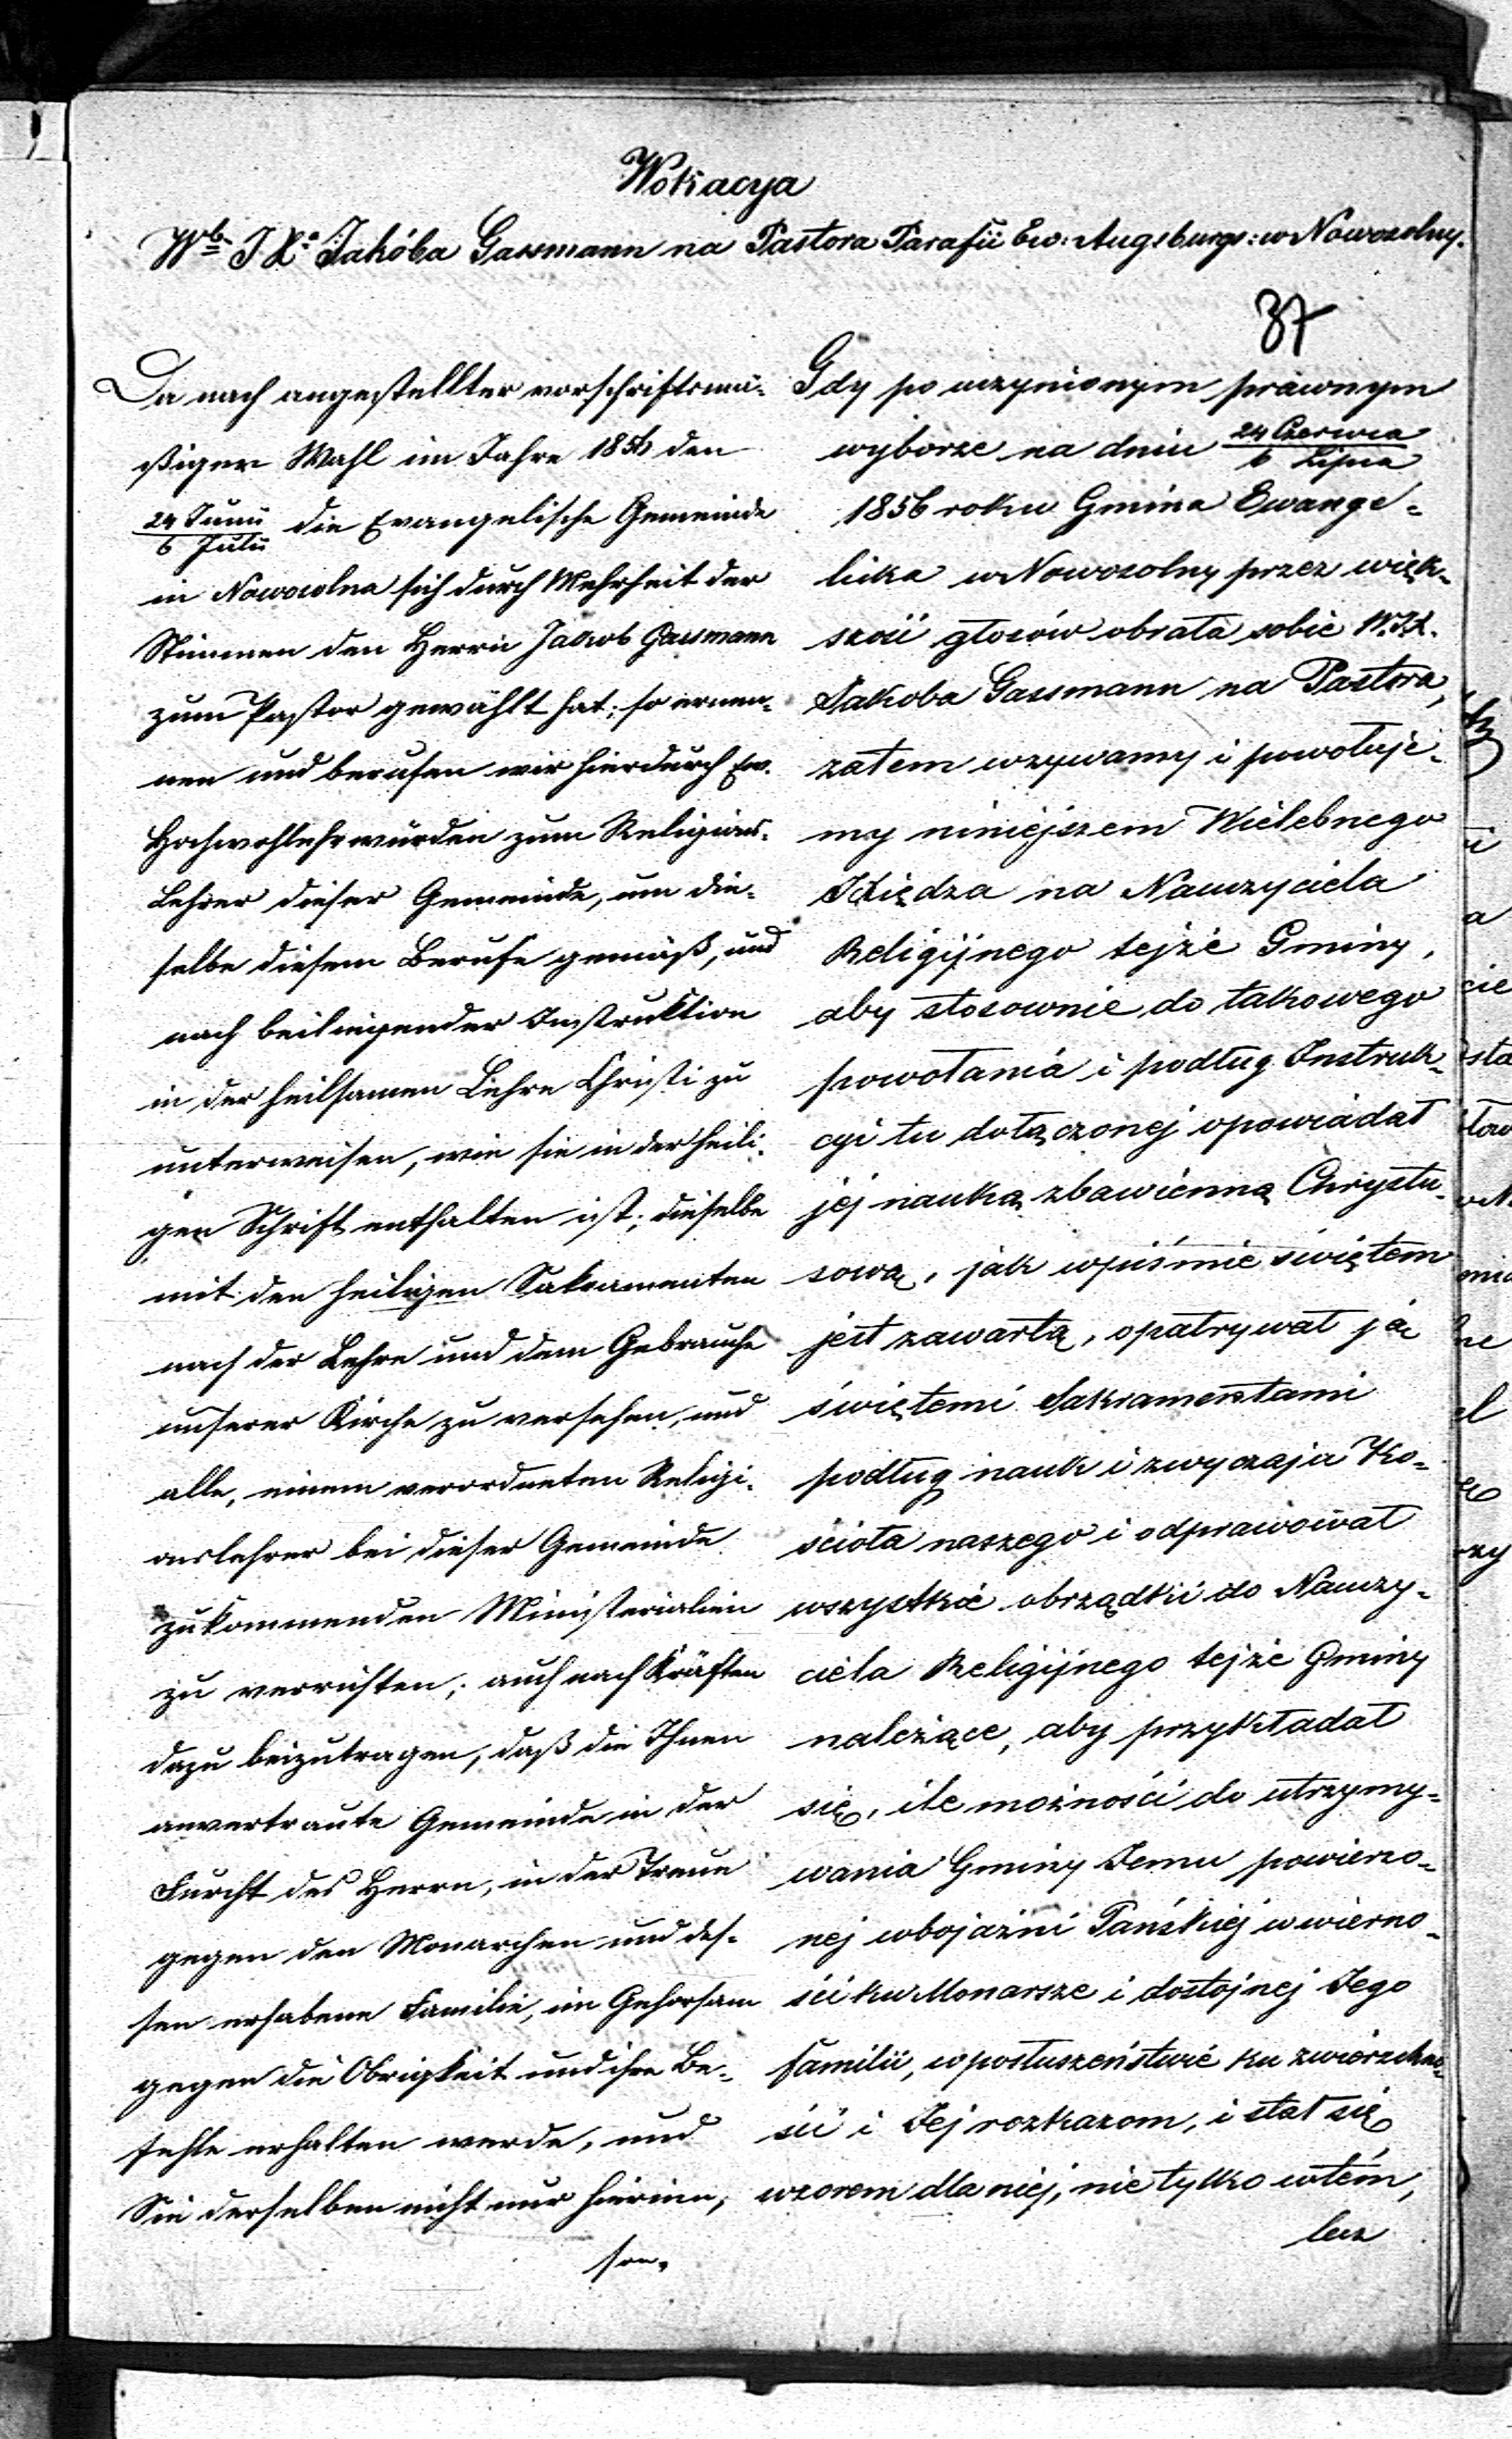 Wokacya
Wb JX Jakóba Gassmann na Pastora Parafii Ew: Augsburgs: w Nowosolny.
37
Da nach angestellter vorschriftsmä-
ßigen Wahl im Jahre 1856 den
24 Junii
6 Julii
die Evangelische Gemeinde
in Nowosolna sich durch Mehrheit der
Stimmen den Herrn Jacob Gassmann
zum Pastor gewählt hat; so ernen-
nen und berufen wir hierdurch Ew.
Hochwohlehrwürden zum Religions-
Lehrer dieser Gemeinde, um die-
selbe diesem Berufe gemäß, und
nach beiliegender Instruktion
in der heilsamen Lehre Christi zu
unterweisen, wie sie in der heili-
gen Schrift enthalten ist; dieselbe
mit den heiligen Sakramenten
nach der Lehre und dem Gebrauche
unserer Kirche zu versehen, und
alle, einem verordneten Religi-
onslehrer bei dieser Gemeinde
zukommenden Ministerialien
zu verrichten; auch nach Kräften
dazu beizutragen, daß die Ihnen
anvertraute Gemeinde in der
Furcht des Herrn, in der Treue
gegen den Monarchen und des-
sen erhabene Familie, im Gehorsam
gegen die Obrigkeit und ihre Be-
fehle erhalten werde, und
Sie derselben nicht nur hierinn,
son-
Gdy po uczynionym prawnym
wyborze na dniu 24 Czerwca
6 Lipca
1856 roku Gmina Ewange-
licka w Nowosolny przez więk-
szość głosów obrała sobie W.JX.
Jakoba Gassmann na Pastora,
zatem wzywamy i powołuje-
my niniejszem Wielebnego
JXiędza na Nauczyciela
Religijnego tejże Gminy,
aby stosownie do takowego
powołania i podług Instruk-
cyi tu dołączonej opowiadał
jej nauką zbawienną Chrystu-
sową, jak w piśmie świętem
jest zawartą, opatrywał ją
świętemi Sakramentami
podług nauk i zwyczaju Ko-
ścioła naszego i odprawował
wszystkie obrządki do Nauczy-
ciela Religijnego tejże Gminy
należące, aby przykładał
się, ile możności do utrzymy-
wania Gminy Jemu powierzo-
nej w bojaźni Pańskiej w wierno-
ści ku Monarsze i dostojnej Jego
familii, w posłuszeństwie ku zwierzchno-
ści i Jej rozkazom, i stał się
wzorem dla niej, nie tylko w tém,
lecz